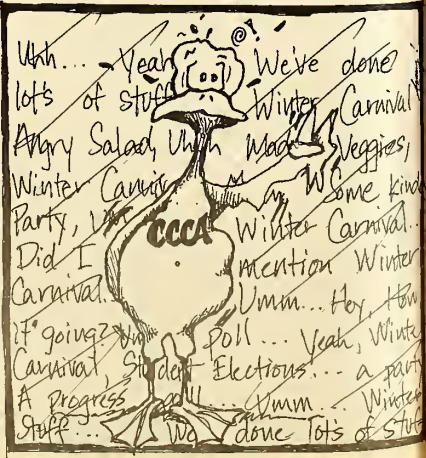 @!
Uhh... Yeah We've done
lot's of stuff Winter Carnival
Angry Salad, Uhh Mad Veggies,
Winter Carniv Some kind
Party, Winter Carnival...
CCCA
Did I mention Winter
Carnival... Umm... Hey, How
it going? poll... Yeah, Winte
Carnival, Student Elections... a party
A progress Umm... Winter
Stuff... We done lots of Stuff